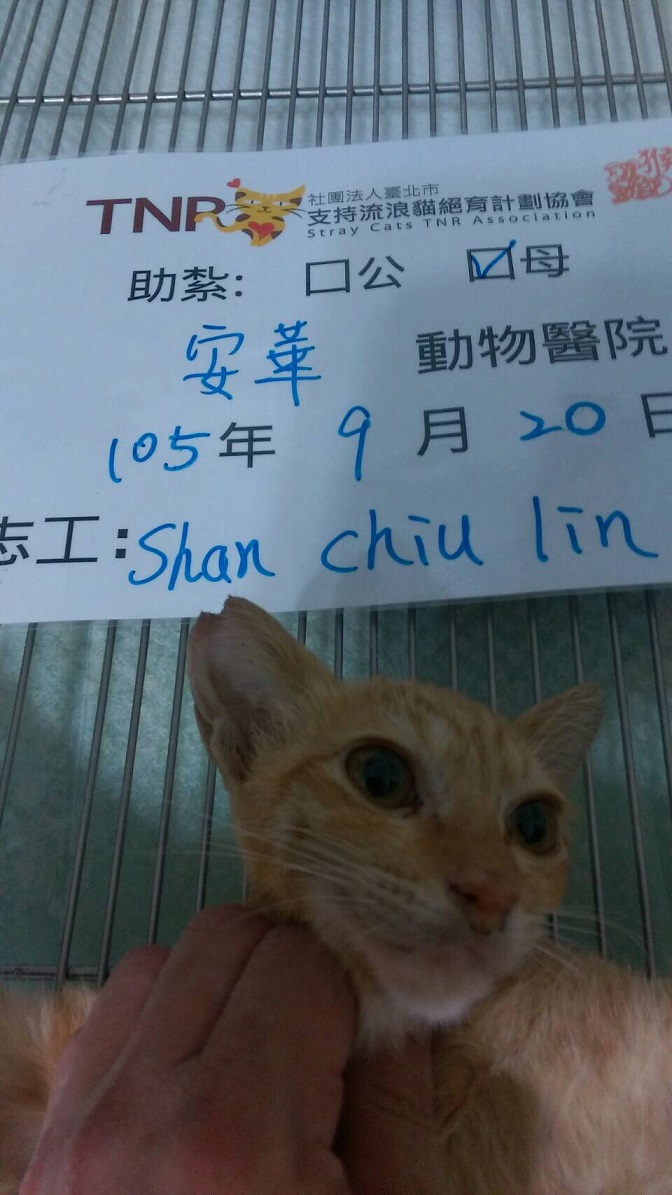 TNR 社團法人臺北市
支持流浪貓絕育計劃協會
Stray Cats TNR Association
助紮: □公 ☑母
安華 動物醫院
105年 9月 20日
志工:Shan chiu lin